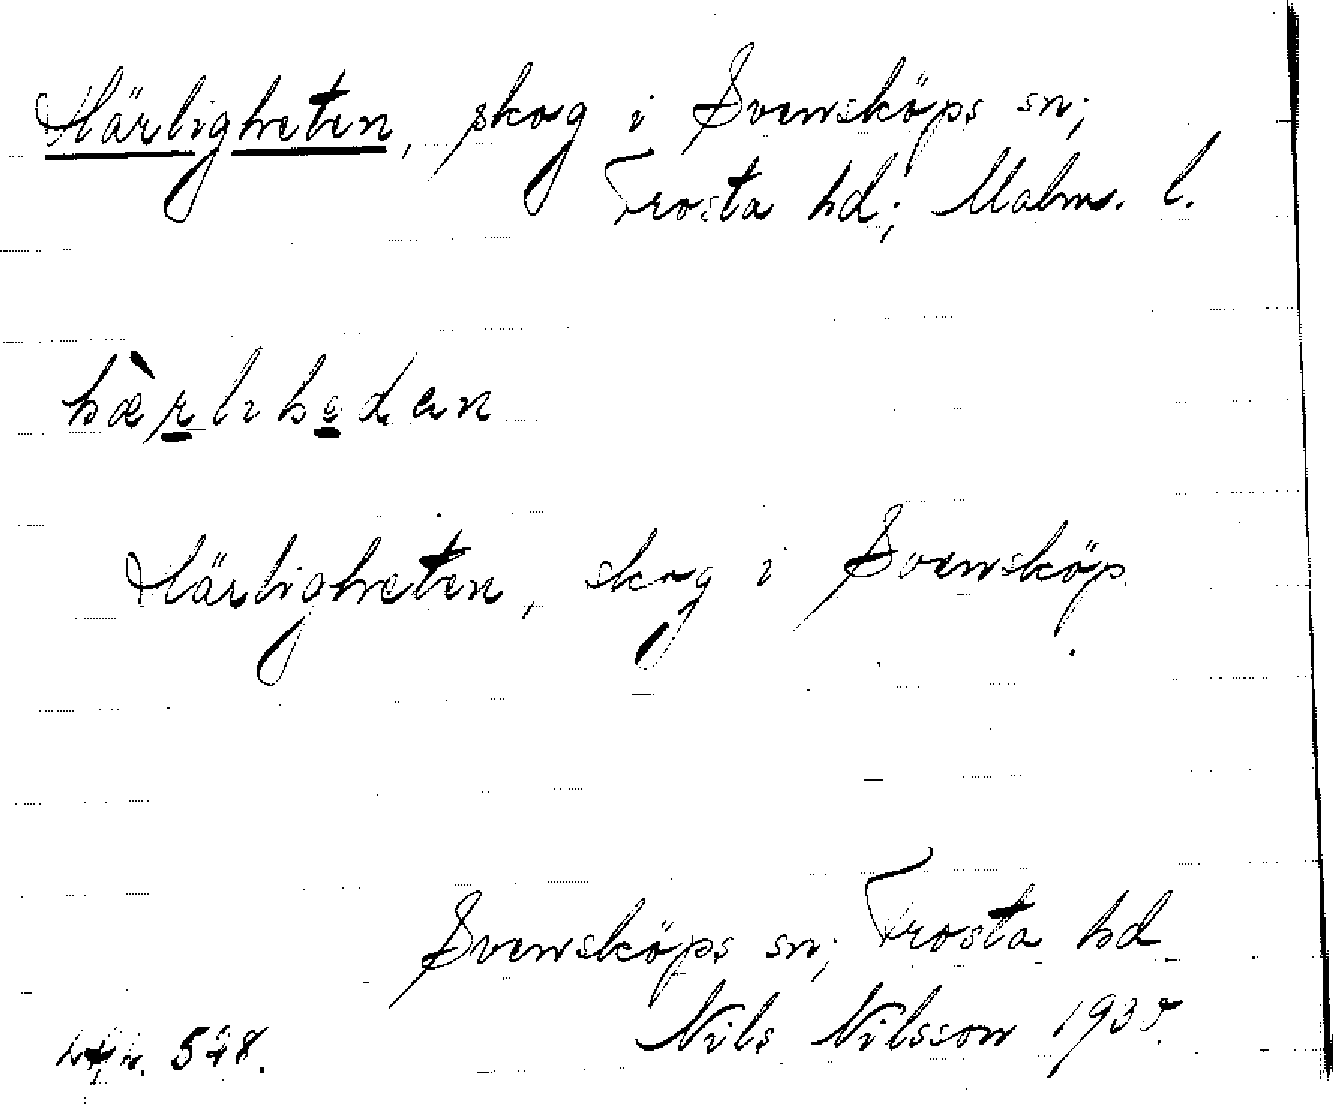 Härligheten, skog i Svensköps sn;
Trosta hd; Malm. l.
hæ̀rliheden
Härligheten, skog i Svensköp
Svensköps sn; Frosta hd
Nils Nilsson 1935.
528.